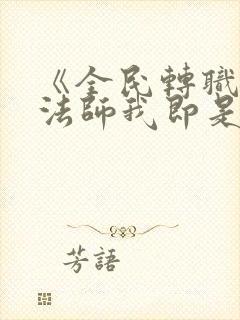 《全民轉職
法師我即是
芳語